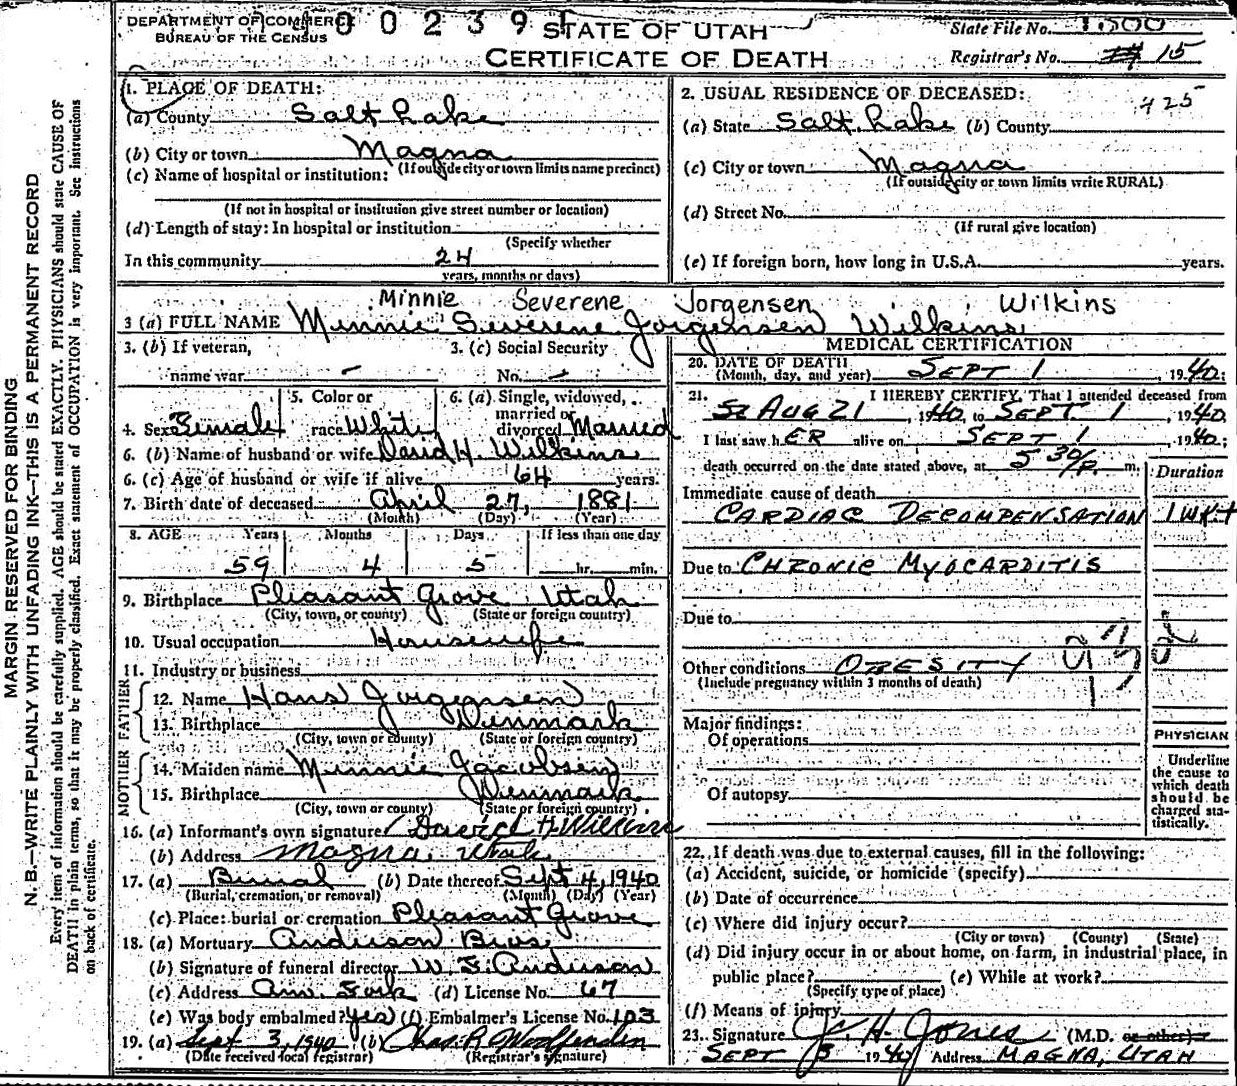 DEPARTMENT OF COMMERCE
BUREAU OF THE CENSUS
400239
STATE OF UTAH
CERTIFICATE OF DEATH
State File No. 1500
Registrar's No. 15
MARGIN RESERVED FOR BINDING
N. B.—WRITE PLAINLY WITH UNFADING INK—THIS IS A PERMANENT RECORD
Every item of information should be carefully supplied. AGE should be stated EXACTLY. PHYSICIANS should state CAUSE OF
DEATH in plain terms, so that it may be properly classified. Exact statement of OCCUPATION is very important. See instructions
on back of certificate.
1. PLACE OF DEATH:
(a) County Salt Lake
(b) City or town Magna
(If outside city or town limits name precinct)
(c) Name of hospital or institution:
(If not in hospital or institution give street number or location)
(d) Length of stay: In hospital or institution
(Specify whether
In this community 24
years, months or days)
2. USUAL RESIDENCE OF DECEASED:
425
(a) State Salt Lake (b) County
(c) City or town Magna
(If outside city or town limits write RURAL)
(d) Street No.
(If rural give location)
(e) If foreign born, how long in U.S.A. years.
Minnie Severene Jorgensen Wilkins
3 (a) FULL NAME Minnie Severene Jorgensen Wilkins
3. (b) If veteran, 3. (c) Social Security
name war - No. -
4. Sex Female 5. Color or race White 6. (a) Single, widowed, married or divorced Married
6. (b) Name of husband or wife David H. Wilkins
6. (c) Age of husband or wife if alive 64 years.
7. Birth date of deceased April 27, 1881
(Month) (Day) (Year)
8. AGE Years Months Days If less than one day
59 4 5 hr. min.
9. Birthplace Pleasant Grove Utah
(City, town, or county) (State or foreign country)
10. Usual occupation Housewife
11. Industry or business
FATHER
12. Name Hans Jorgensen
13. Birthplace Denmark
(City, town or county) (State or foreign country)
MOTHER
14. Maiden name Minnie Jacobsen
15. Birthplace Denmark
(City, town or county) (State or foreign country)
16. (a) Informant's own signature David H. Wilkins
(b) Address Magna, Utah
17. (a) Burial (b) Date thereof Sept 4, 1940
(Burial, cremation, or removal) (Month) (Day) (Year)
(c) Place: burial or cremation Pleasant Grove
18. (a) Mortuary Anderson Bros
(b) Signature of funeral director W. F. Anderson
(c) Address Am. Fork (d) License No. 67
(e) Was body embalmed? Yes (f) Embalmer's License No. 103
19. (a) Sept 3, 1940 (b) Chas. R. Woolfenden
(Date received local registrar) (Registrar's signature)
MEDICAL CERTIFICATION
20. DATE OF DEATH
(Month, day, and year) SEPT 1, 1940;
21. I HEREBY CERTIFY, That I attended deceased from
AUG 21, 1940, to SEPT 1, 1940.
I last saw h ER alive on SEPT 1, 1940;
death occurred on the date stated above, at 5 30/P. m.
Duration
Immediate cause of death
CARDIAC DECOMPENSATION 1 WK+
Due to CHRONIC MYOCARDITIS
Due to
Other conditions OBESITY
(Include pregnancy within 3 months of death)
Major findings:
Of operations
Of autopsy
PHYSICIAN
Underline
the cause to
which death
should be
charged sta-
tistically.
22. If death was due to external causes, fill in the following:
(a) Accident, suicide, or homicide (specify)
(b) Date of occurrence
(c) Where did injury occur?
(City or town) (County) (State)
(d) Did injury occur in or about home, on farm, in industrial place, in
public place? (e) While at work?
(Specify type of place)
(f) Means of injury
23. Signature J. H. Jones (M.D. or other)
SEPT 3 1940 Address MAGNA, UTAH